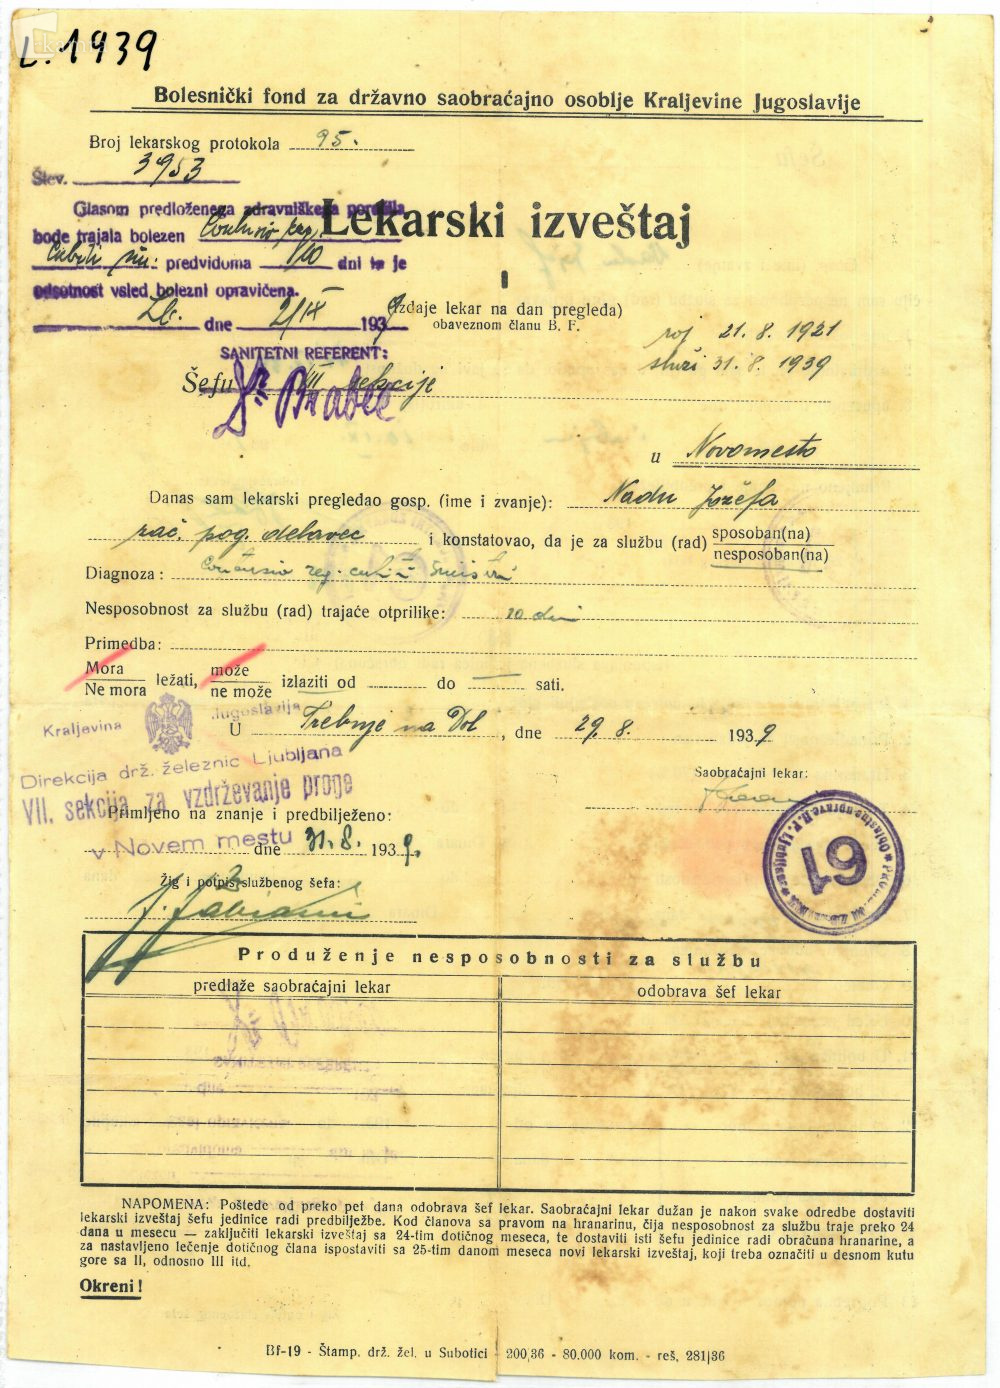 L. 1939
Bolesnički fond za državno saobraćajno osoblje Kraljevine Jugoslavije
Broj lekarskog protokola 95.
Štev. 3953
Glasom predloženega zdravniškega poročila
bode trajala bolezen
predvidoma dni in je
odsotnost vsled bolezni opravičena.
dne 2/IX 1939
SANITETNI REFERENT:
Dr Brabec
Lekarski izveštaj
I
(Izdaje lekar na dan pregleda)
obaveznom članu B. F.
roj 21. 8. 1921
služi 31. 8. 1939
Šefu VII sekcije
u Novomesto
Danas sam lekarski pregledao gosp. (ime i zvanje): Nadu Jožefa
pog. delavec i konstatovao, da je za službu (rad) sposoban(na)
nesposoban(na)
Diagnoza: reg. cubiti
Nesposobnost za službu (rad) trajaće otprilike: 10 dni
Primedba:
Mora ležati, može izlaziti od do sati.
Ne mora ne može
Kraljevina Jugoslavija
U Trebnje na Dol, dne 29. 8. 1939
Direkcija drž. železnic Ljubljana
VII. sekcija za vzdrževanje proge
v Novem mestu
Saobraćajni lekar:
Primljeno na znanje i predbilježeno:
dne 31. 8. 1939.
Žig i potpis službenog šefa:
61
Oblastne uprave B. F. Ljubljana
Produženje nesposobnosti za službu
predlaže saobraćajni lekar
odobrava šef lekar
NAPOMENA: Poštede od preko pet dana odobrava šef lekar. Saobraćajni lekar dužan je nakon svake odredbe dostaviti
lekarski izveštaj šefu jedinice radi predbilježbe. Kod članova sa pravom na hranarinu, čija nesposobnost za službu traje preko 24
dana u mesecu — zaključiti lekarski izveštaj sa 24-tim dotičnog meseca, te dostaviti isti šefu jedinice radi obračuna hranarine, a
za nastavljeno lečenje dotičnog člana ispostaviti sa 25-tim danom meseca novi lekarski izveštaj, koji treba označiti u desnom kutu
gore sa II, odnosno III itd.
Okreni!
Bf-19 - Štamp. drž. žel. u Subotici - 200,36 - 80.000 kom. - reš, 281|36